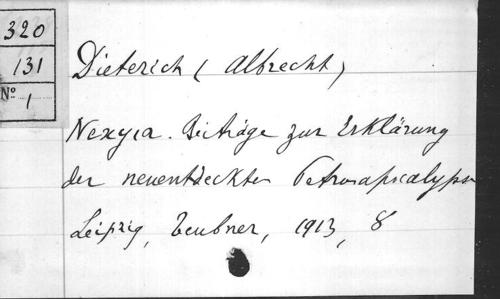 320
131
No 1
Dieterich (Albrecht)
Nexyia. Beiträge zur Erklärung
der neuentdeckten Petrusapocalypse
Leipzig, Teubner, 1913, 8